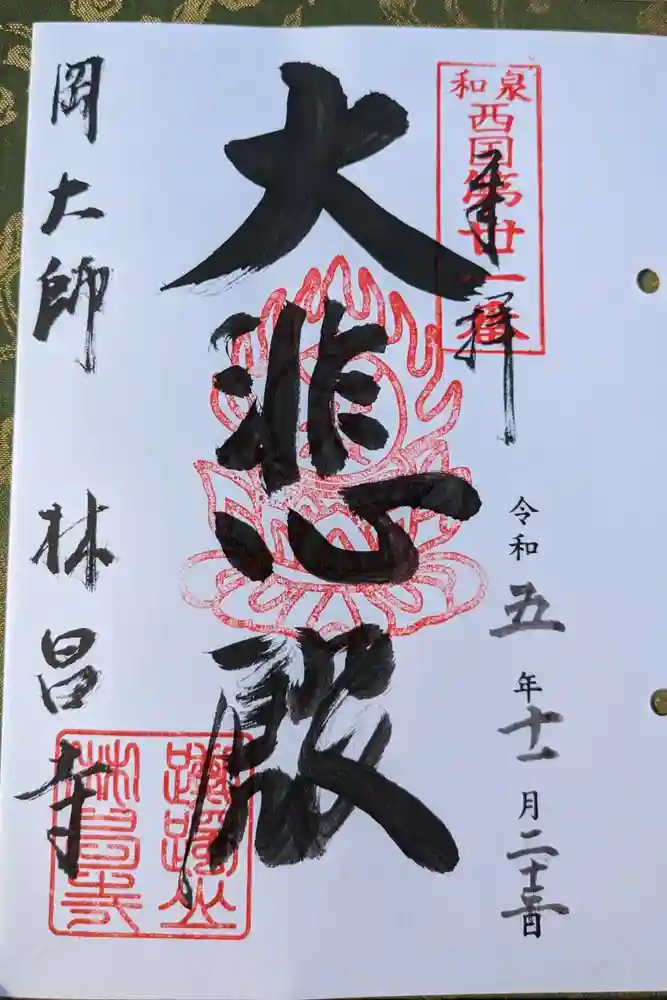 和泉
西国第廿一番
奉拝
令和五年十一月二十三日
大悲殿
岡大師 林昌寺
躑躅山
林昌寺